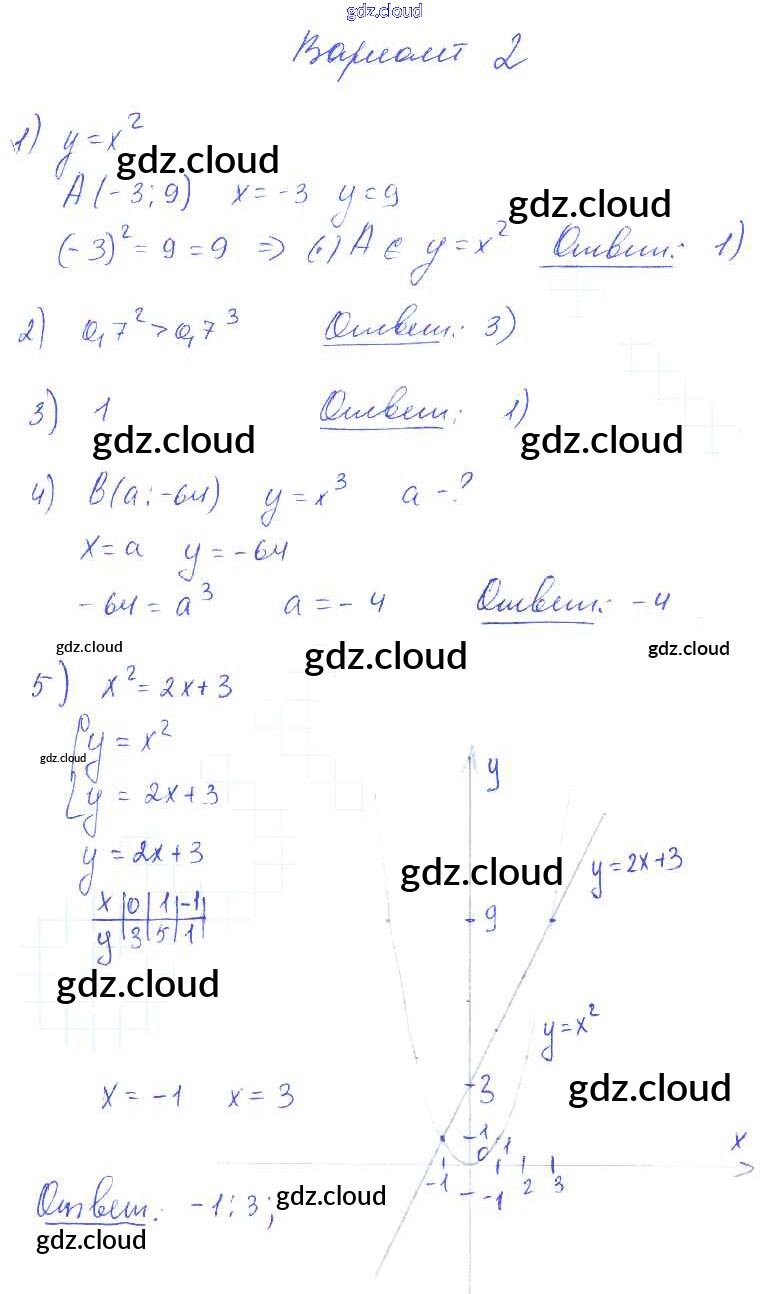 gdz.cloud
Вариант 2
1) y = x²
gdz.cloud
A(-3; 9) x = -3 y = 9
gdz.cloud
(-3)² = 9 = 9 ⇒ (·) A ∈ y = x² Ответ: 1)
2) 0,7² > 0,7³ Ответ: 3)
3) 1 Ответ: 1)
gdz.cloud gdz.cloud
4) B(a; -64) y = x³ a - ?
x = a y = -64
-64 = a³ a = -4 Ответ: -4
gdz.cloud gdz.cloud gdz.cloud
5) x² = 2x + 3
{ y = x²
gdz.cloud
y = 2x + 3
y = 2x + 3
x | 0 | 1 | -1
y | 3 | 5 | 1
gdz.cloud
x = -1 x = 3
y
gdz.cloud
y = 2x + 3
9
y = x²
gdz.cloud
3
1
0
1
x
-1
-1
2
3
Ответ: -1; 3;
gdz.cloud
gdz.cloud